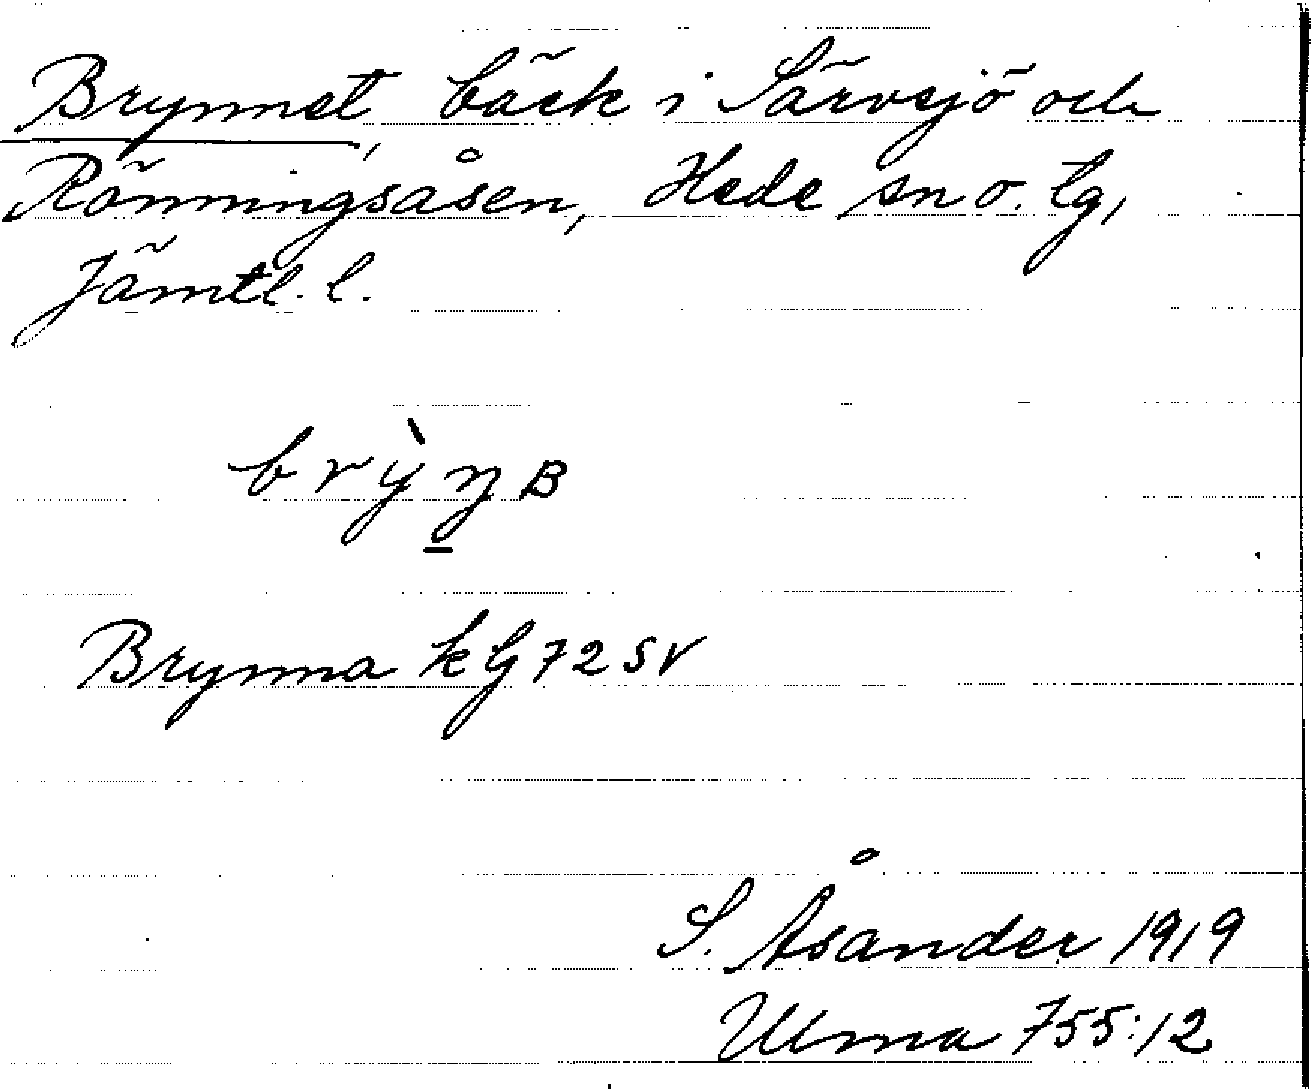 Brynnet, bäck i Särvsjö och
Rönningsåsen, Hede sn o. tg,
Jämtl. l.
brỳŋʙ
Brynna kg 72 SV
S. Åsander 1919
Ulma 755:12